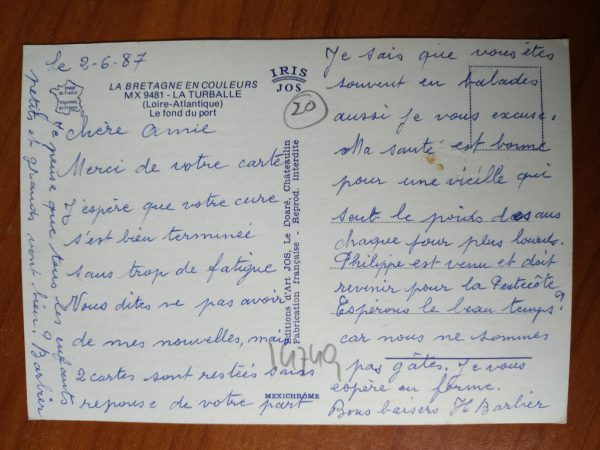 le 2-6-87
LA BRETAGNE EN COULEURS
MX 9481 - LA TURBALLE
(Loire-Atlantique)
Le fond du port
IRIS
JOS
20
chère Amie
Merci de votre carte
J'espère que votre cure
s'est bien terminée
sans trop de fatigue
Vous dites ne pas avoir
de mes nouvelles, mais
2 cartes sont restées sans
reponse de votre part
Je sais que vous êtes
souvent en balades
aussi je vous excuse.
Ma santé est bonne
pour une vieille qui
sent le poids des ans
chaque jour plus lourds.
Philippe est venu et doit
revenir pour la Pentecôte
Espérons le beau temps?
car nous ne sommes
pas gâtés. Je vous
espère en forme.
Bons baisers H Barbier
Je pense que tous les enfants
petits et grands vont bien? Barbier
Editions d'Art JOS, Le Doaré, Châteaulin
Fabrication française - Reprod. interdite
14749
MEXICHROME